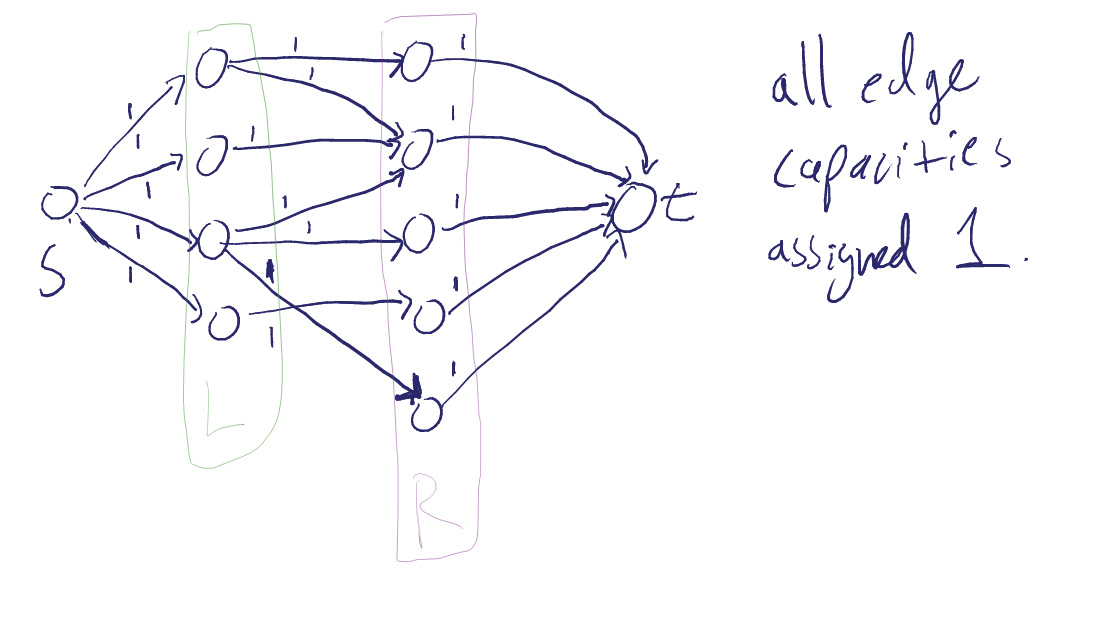 1 1 1
1 1 1
1 1 1 1
1 1 1 1
1 1 1
1 1
s
t
L
R
all edge
capacities
assigned 1.